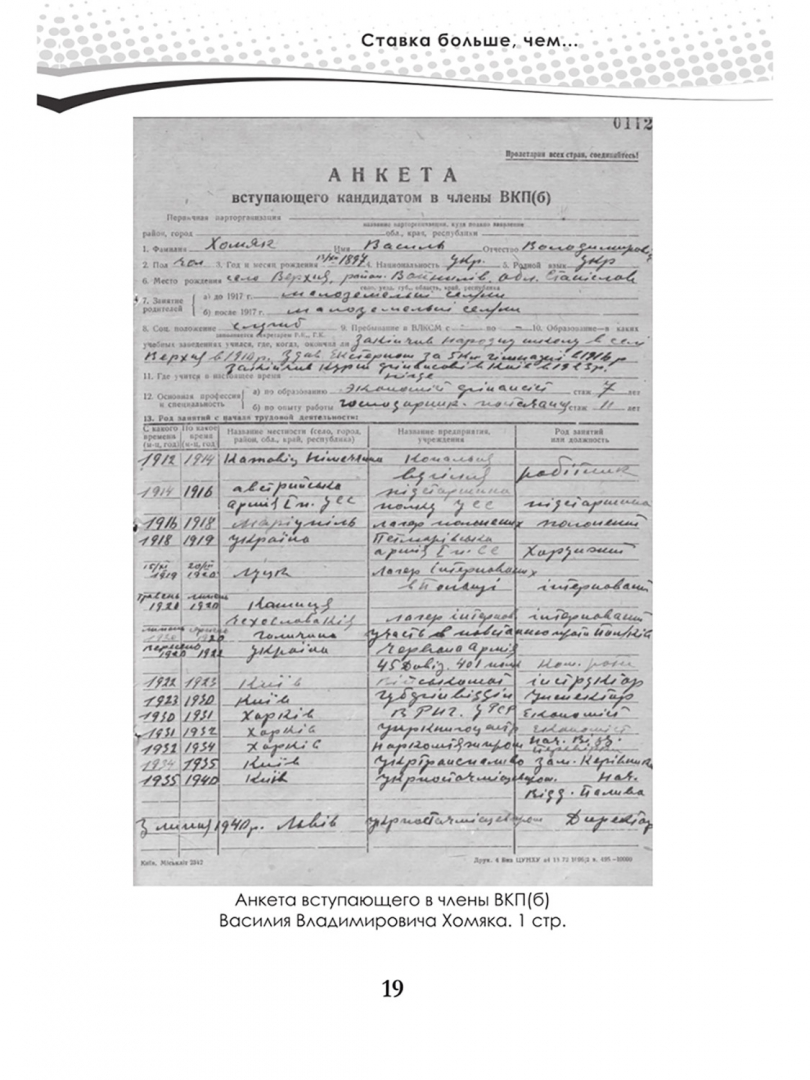 Ставка больше, чем...
0112
Пролетарии всех стран, соединяйтесь!
АНКЕТА
вступающего кандидатом в члены ВКП(б)
Первичная парторганизация
название парторганизации, куда подано заявление
район, город обл., края, республики
1. Фамилия Хомяк Имя Василь Отчество Володимирович
2. Пол чол 3. Год и месяц рождения 1897 4. Национальность укр. 5. Родной язык укр
6. Место рождения село Верхня, район. Войнилів, обл. Станіслав
село, уезд, губ., область, край, республика
7. Занятие родителей а) до 1917 г. малоземельні селяни
б) после 1917 г. малоземельні селяни
8. Соц. положение служб 9. Пребывание в ВЛКСМ с - по - 10. Образование—в каких
учебных заведениях учился, где, когда, окончил ли Закінчив народну школу в селі
Верхня в 1910 р. Здав Екстерном за 5 кл гімназії в 1916 р
Закінчив курси фінансові в Київ в 1923 р.
11. Где учится в настоящее время нігде
12. Основная профессия и специальность а) по образованию Економіст фінансіст стаж 7 лет
б) по опыту работы господарник стаж 11 лет
13. Род занятий с начала трудовой деятельности:
С какого времени (м-ц, год) По какое время (м-ц, год) Название местности (село, город, район, обл., край, республика) Название предприятия, учреждения Род занятий или должность
1912 1914 Катовіц Німеччина Копальня
вугілля робітник
1914 1916 австрійська підстаршина
армія УСС полку УСС підстаршина
1916 1918 Маріупіль лагер полонених полонений
1918 1919 Україна Петлюрівська
армія СС Хорунжий
1919 1920 Луцк лагер Інтернованих
в Польщі інтернований
травень 1920 1920 Кошиця
Чехословакія лагер інтернов інтернований
1920 1920 Галичина участь в повстанню проти поляків
1920 1922 Україна Червона Армія
45 Дивіз. 401 полк Ком. роти
1922 1923 Київ Військомат інструктор
1923 1930 Київ Губфінвідділ Інспектор
1930 1931 Харків В.Р.Н.Г. УРСР Економіст
1931 1932 Харків Економіст
1932 1934 Харків Нач. Від.
1934 1935 Київ зам. Керівника
1935 1940 Київ Нач.
Відд. Палива
З липня 1940 р. Львів Директор
Київ, Міськліт 2842
Друк.
Анкета вступающего в члены ВКП(б)
Василия Владимировича Хомяка. 1 стр.
19